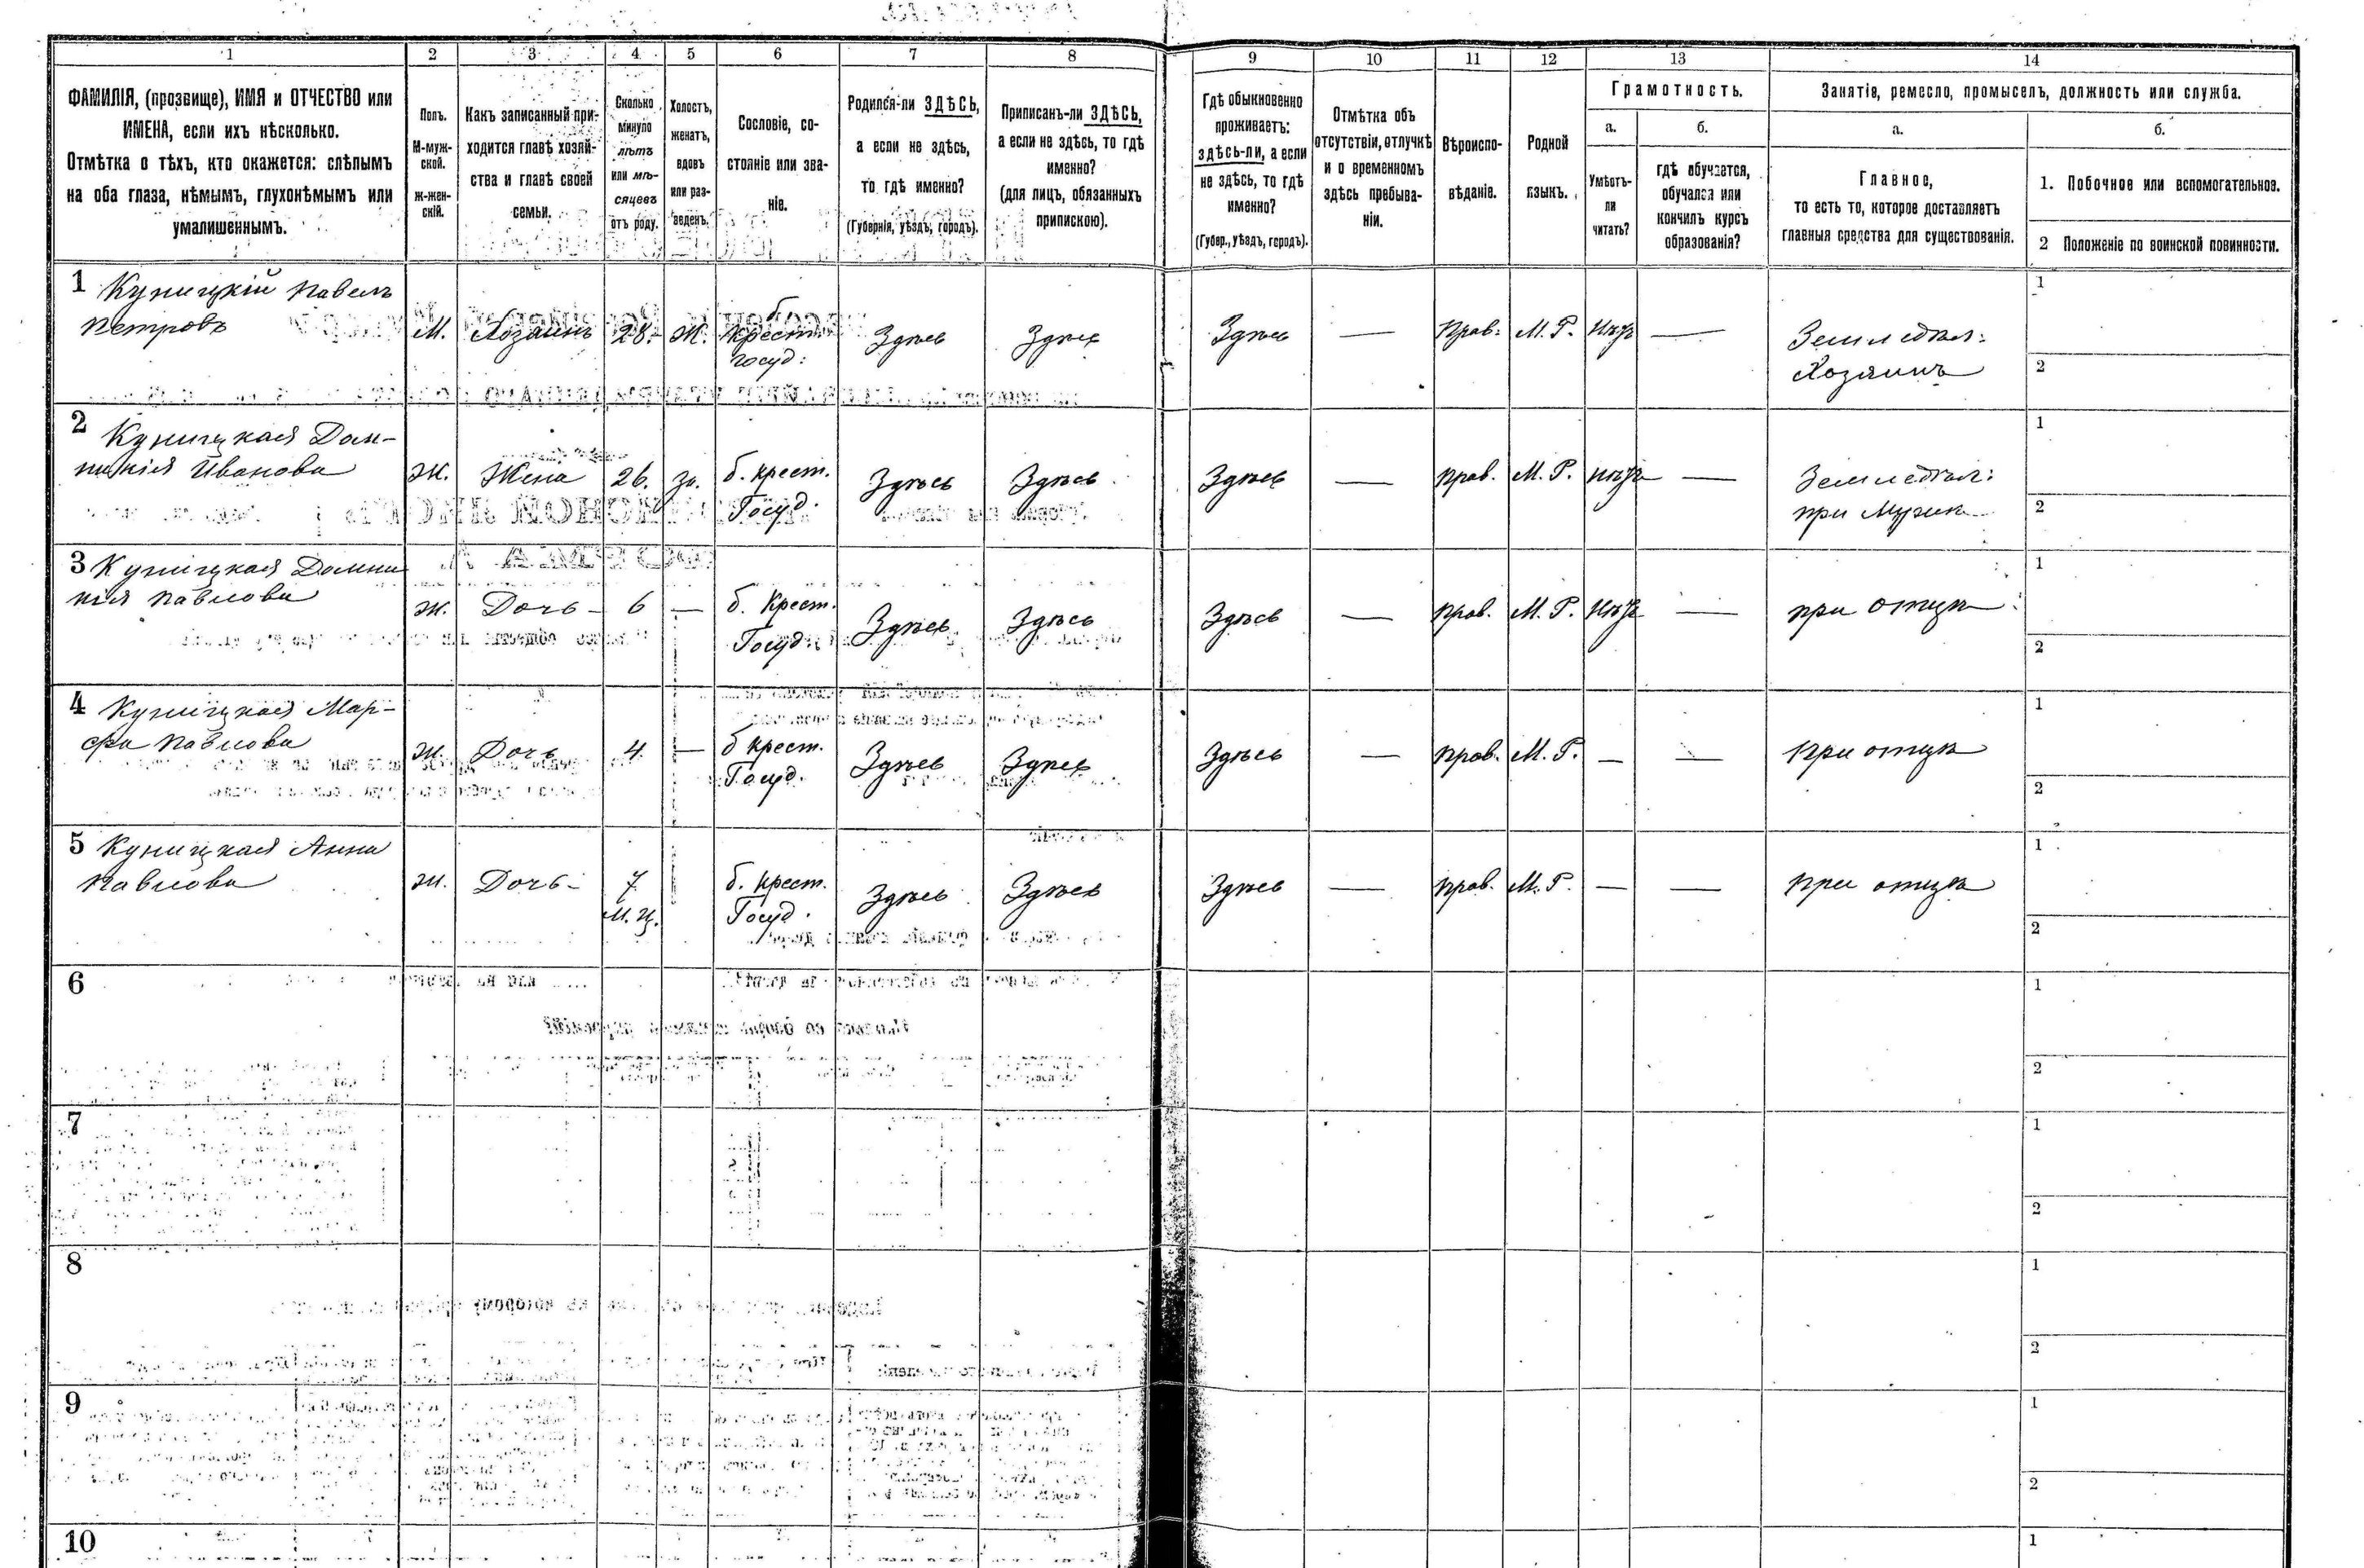 1 2 3 4 5 6 7 8 9 10 11 12 13 14
ФАМИЛІЯ, (прозвище), ИМЯ и ОТЧЕСТВО или
ИМЕНА, если ихъ нѣсколько.
Отмѣтка о тѣхъ, кто окажется: слѣпымъ
на оба глаза, нѣмымъ, глухонѣмымъ или
умалишеннымъ.
Полъ.
М-муж-
ской.
Ж-жен-
скій.
Какъ записанный при-
ходится главѣ хозяй-
ства и главѣ своей
семьи.
Сколько
минуло
лѣтъ
или мѣ-
сяцевъ
отъ роду.
Холостъ,
женатъ,
вдовъ
или раз-
веденъ.
Сословіе, со-
стояніе или зва-
ніе.
Родился-ли ЗДѢСЬ,
а если не здѣсь,
то гдѣ именно?
(Губернія, уѣздъ, городъ).
Приписанъ-ли ЗДѢСЬ,
а если не здѣсь, то гдѣ
именно?
(для лицъ, обязанныхъ
припискою).
Гдѣ обыкновенно
проживаетъ:
здѣсь-ли, а если
не здѣсь, то гдѣ
именно?
(Губер., уѣздъ, городъ).
Отмѣтка объ
отсутствіи, отлучкѣ
и о временномъ
здѣсь пребыва-
ніи.
Вѣроиспо-
вѣданіе.
Родной
языкъ.
Грамотность.
а.
Умѣетъ-
ли
читать?
б.
гдѣ обучается,
обучался или
кончилъ курсъ
образованія?
Занятіе, ремесло, промыселъ, должность или служба.
а.
Главное,
то есть то, которое доставляетъ
главныя средства для существованія.
б.
1. Побочное или вспомогательное.
2 Положеніе по воинской повинности.
1 Куницкій Павелъ
Петровъ
М. Хозяинъ 28. Ж. б. крест.
госуд:
Здѣсь Здѣсь Здѣсь — Прав. М. Р. Нѣтъ — Земледѣл:
Хозяинъ
1
2
2 Куницкая Дом-
никія Иванова
Ж. Жена 26. За. б. крест.
Госуд.
Здѣсь Здѣсь Здѣсь — прав. М. Р. нѣтъ — Земледѣл:
при Мужѣ
1
2
3 Куницкая Домни
кія Павлова
Ж. Дочь - 6 — б. Крест.
Госуд.
Здѣсь Здѣсь Здѣсь — прав. М. Р. Нѣтъ — при отцѣ
1
2
4 Куницкая Мар-
фа Павлова
Ж. Дочь 4. — б крест.
Госуд.
Здѣсь Здѣсь Здѣсь — прав. М. Р. — — при отцѣ
1
2
5 Куницкая Анна
Павлова
Ж. Дочь - 7
М.ц.
б. крест.
Госуд.
Здѣсь Здѣсь Здѣсь — прав. М. Р. — — при отцѣ
1
2
6
1
2
7
1
2
8
1
2
9
1
2
10
1